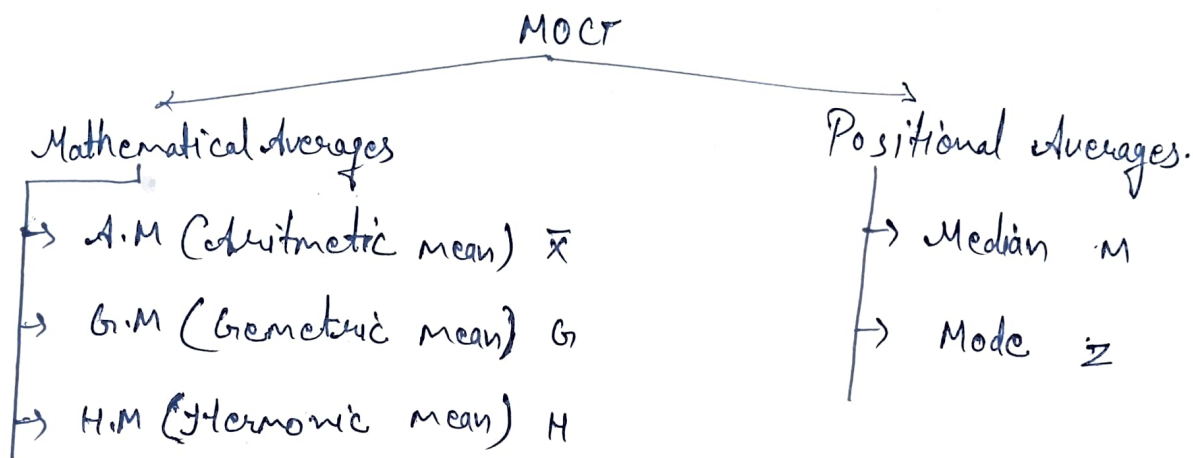 MOCT
Mathematical Averages
A.M (Aritmetic mean) x̅
G.M (Gemetric mean) G
H.M (Hermonic mean) H
Positional Averages.
Median M
Mode Z